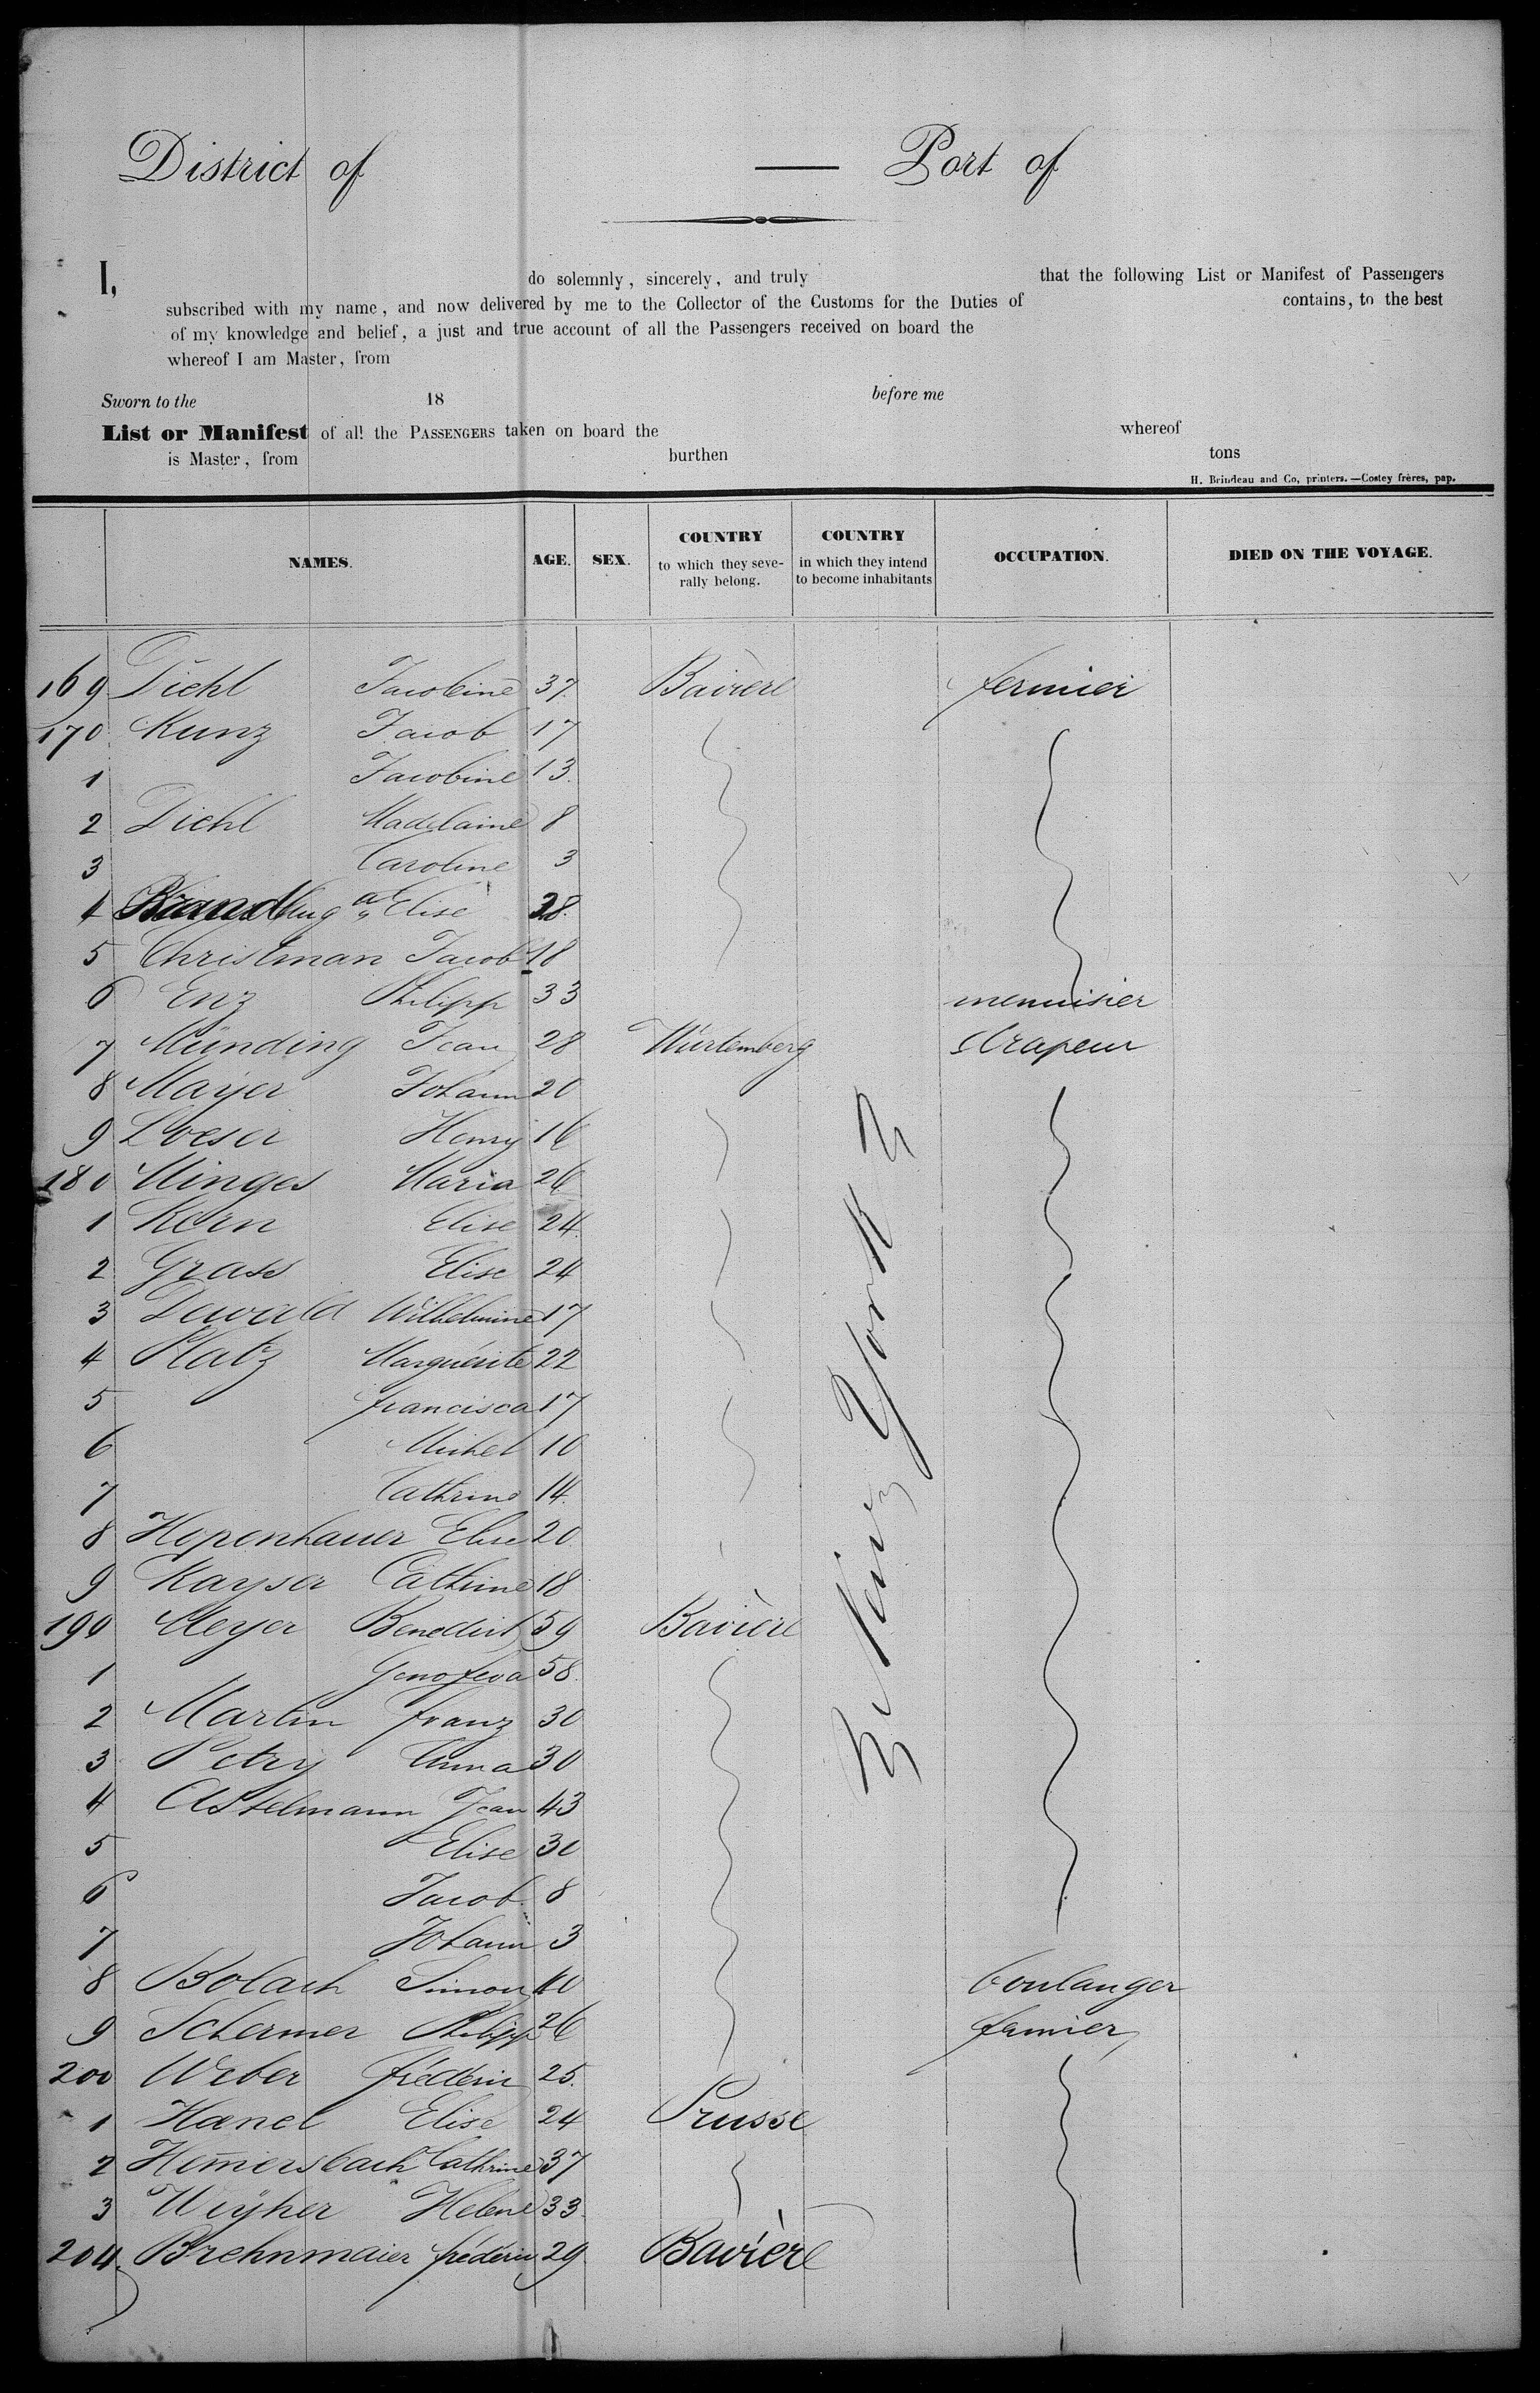 District of — Port of
I, do solemnly, sincerely, and truly that the following List or Manifest of Passengers
subscribed with my name, and now delivered by me to the Collector of the Customs for the Duties of contains, to the best
of my knowledge and belief, a just and true account of all the Passengers received on board the
whereof I am Master, from
Sworn to the 18 before me
List or Manifest of all the PASSENGERS taken on board the whereof
is Master, from burthen tons
H. Brindeau and Co, printers.—Costey frères, pap.
NAMES. AGE. SEX. COUNTRY to which they severally belong. COUNTRY in which they intend to become inhabitants OCCUPATION. DIED ON THE VOYAGE.
169 Diehl Jacobine 37 Bavière fermier
170 Kunz Jacob 17
1 Jacobine 13
2 Diehl Madelaine 8
3 Caroline 3
4 Elise 28
5 Christman Jacob 18
6 Enz Philipp 33 menuisier
7 Münding Jean 28 Würtemberg drapeur
8 Mayer Johann 20
9 Loeser Henry 16
180 Minges Maria 26
1 Kern Elise 24
2 Grass Elise 24
3 Dewald Wilhelmine 17
4 Platz Marguérite 22
5 francisca 17
6 Michel 10
7 Cathrine 14
8 Hopenhauer Elise 20
9 Kayser Cathrine 18
190 Meyer Benedict 59 Bavière
1 Genofeva 58
2 Martin franz 30
3 Petry Anna 30
4 Astelmann Jean 43
5 Elise 30
6 Jacob 8
7 Johann 3
8 Bolach Simon 40 boulanger
9 Schermer Philipp 26 fermier
200 Weber fréderic 25
1 Hanel Elise 24 Prusse
2 Hem̄ersbach Cathrine 37
3 Weyher Helene 33
204 Brehnmaier fréderic 29 Bavière
New York